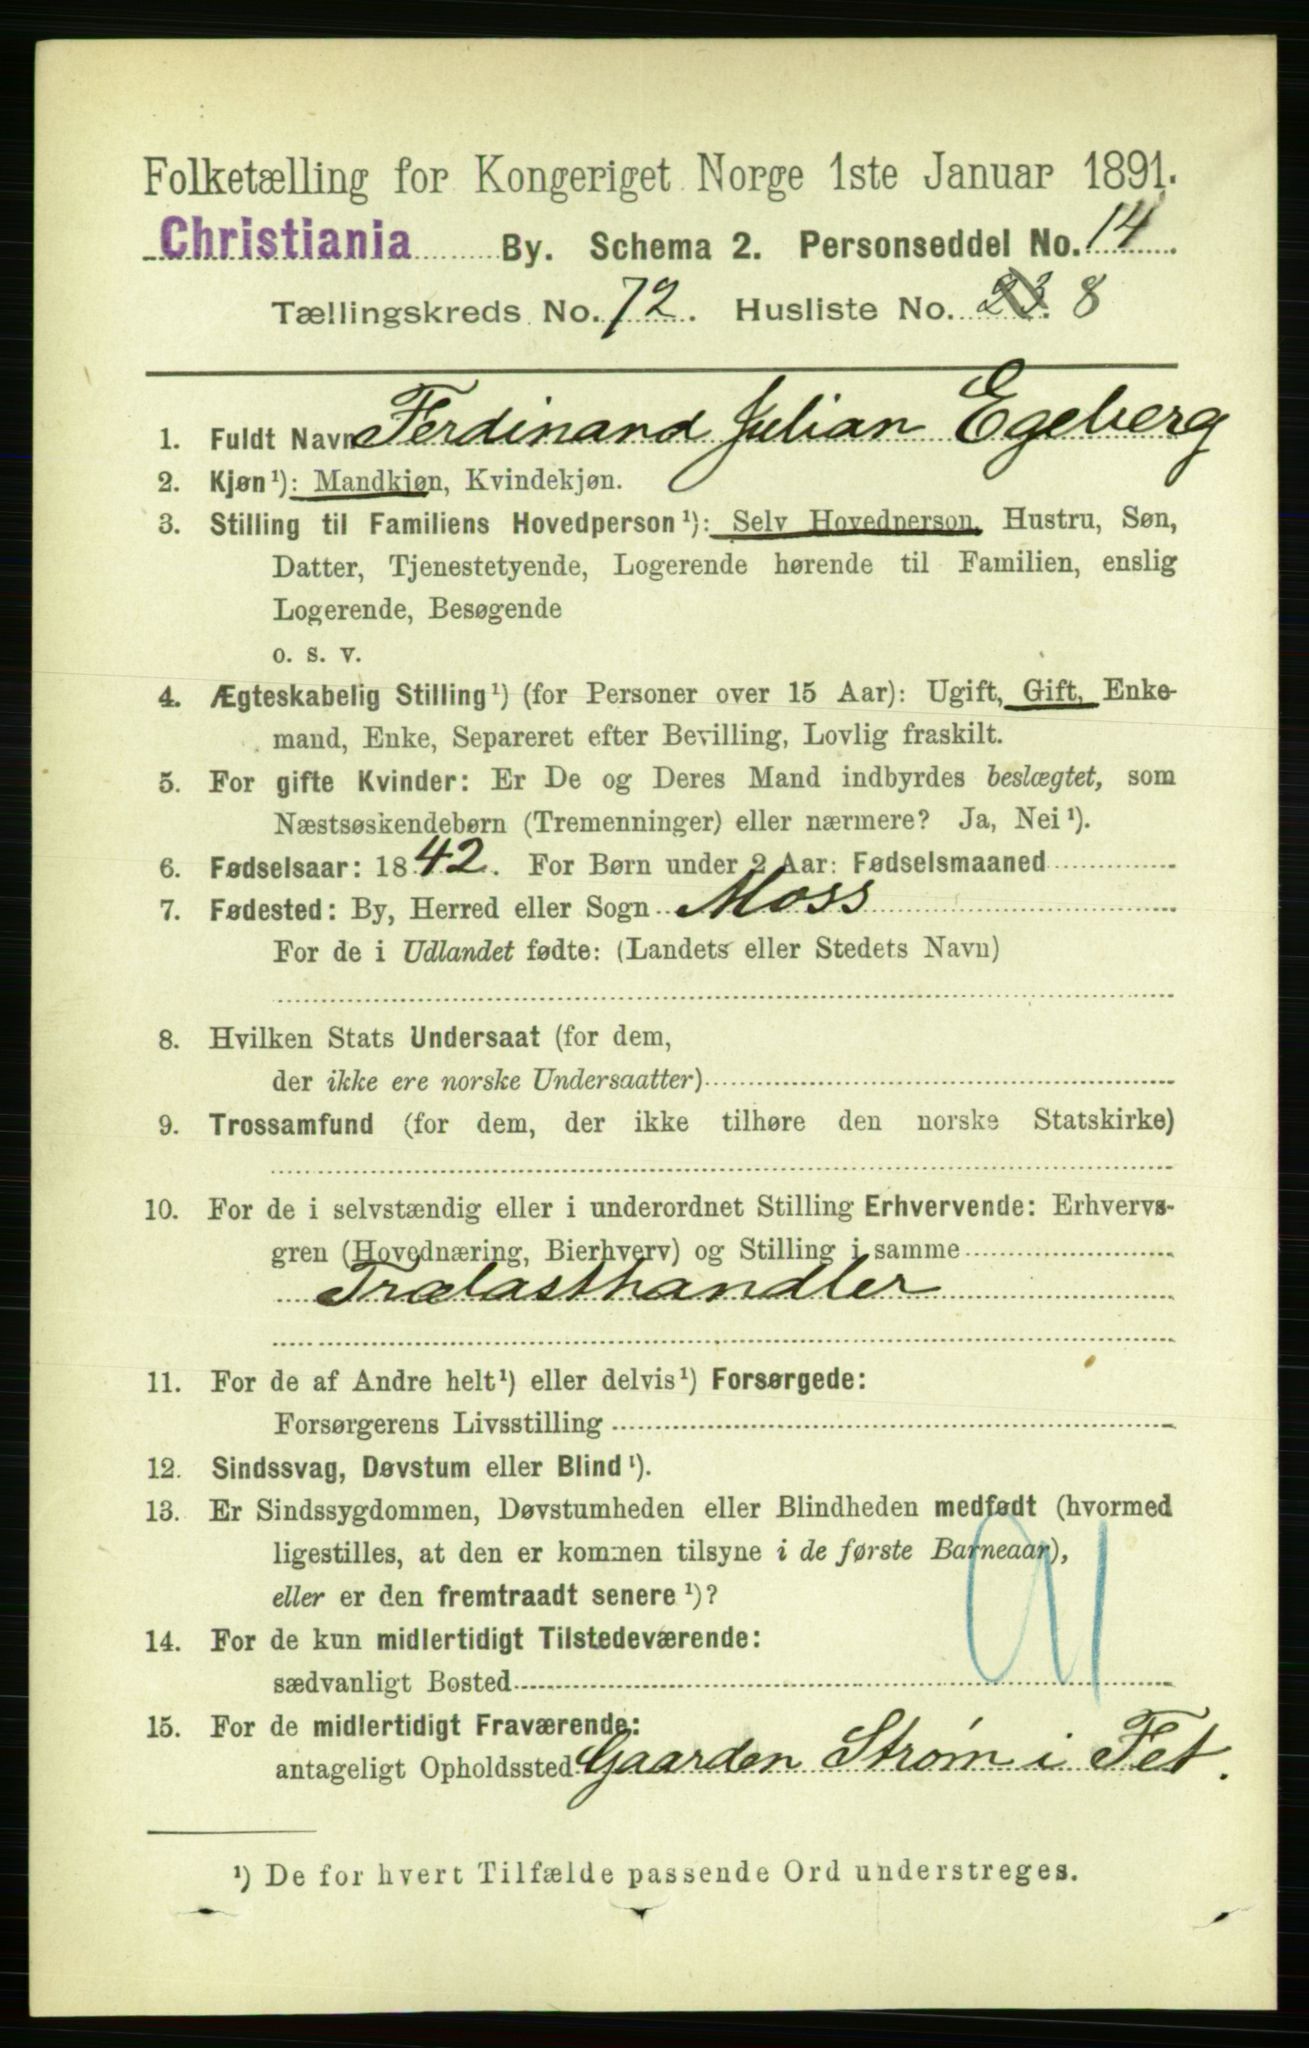 Folketælling for Kongeriget Norge 1ste Januar 1891.
Christiania By. Schema 2. Personseddel No. 14.
Tællingskreds No. 72. Husliste No. 23. 8
1. Fuldt Navn Ferdinand Julian Egeberg
2. Kjøn¹): Mandkjøn, Kvindekjøn.
3. Stilling til Familiens Hovedperson¹): Selv Hovedperson, Hustru, Søn,
Datter, Tjenestetyende, Logerende hørende til Familien, enslig
Logerende, Besøgende
o. s. v.
4. Ægteskabelig Stilling¹) (for Personer over 15 Aar): Ugift, Gift, Enke-
mand, Enke, Separeret efter Bevilling, Lovlig fraskilt.
5. For gifte Kvinder: Er De og Deres Mand indbyrdes beslægtet, som
Næstsøskendebørn (Tremenninger) eller nærmere? Ja, Nei¹).
6. Fødselsaar: 1842. For Børn under 2 Aar: Fødselsmaaned
7. Fødested: By, Herred eller Sogn Moss
For de i Udlandet fødte: (Landets eller Stedets Navn)
8. Hvilken Stats Undersaat (for dem,
der ikke ere norske Undersaatter)
9. Trossamfund (for dem, der ikke tilhøre den norske Statskirke)
10. For de i selvstændig eller i underordnet Stilling Erhvervende: Erhvervs-
gren (Hovednæring, Bierhverv) og Stilling i samme
Trælasthandler
11. For de af Andre helt¹) eller delvis¹) Forsørgede:
Forsørgerens Livsstilling
12. Sindssvag, Døvstum eller Blind¹).
13. Er Sindssygdommen, Døvstumheden eller Blindheden medfødt (hvormed
ligestilles, at den er kommen tilsyne i de første Barneaar),
eller er den fremtraadt senere¹)?
91
14. For de kun midlertidigt Tilstedeværende:
sædvanligt Bosted
15. For de midlertidigt Fraværende:
antageligt Opholdssted Gaarden Strøm i Fet.
¹) De for hvert Tilfælde passende Ord understreges.